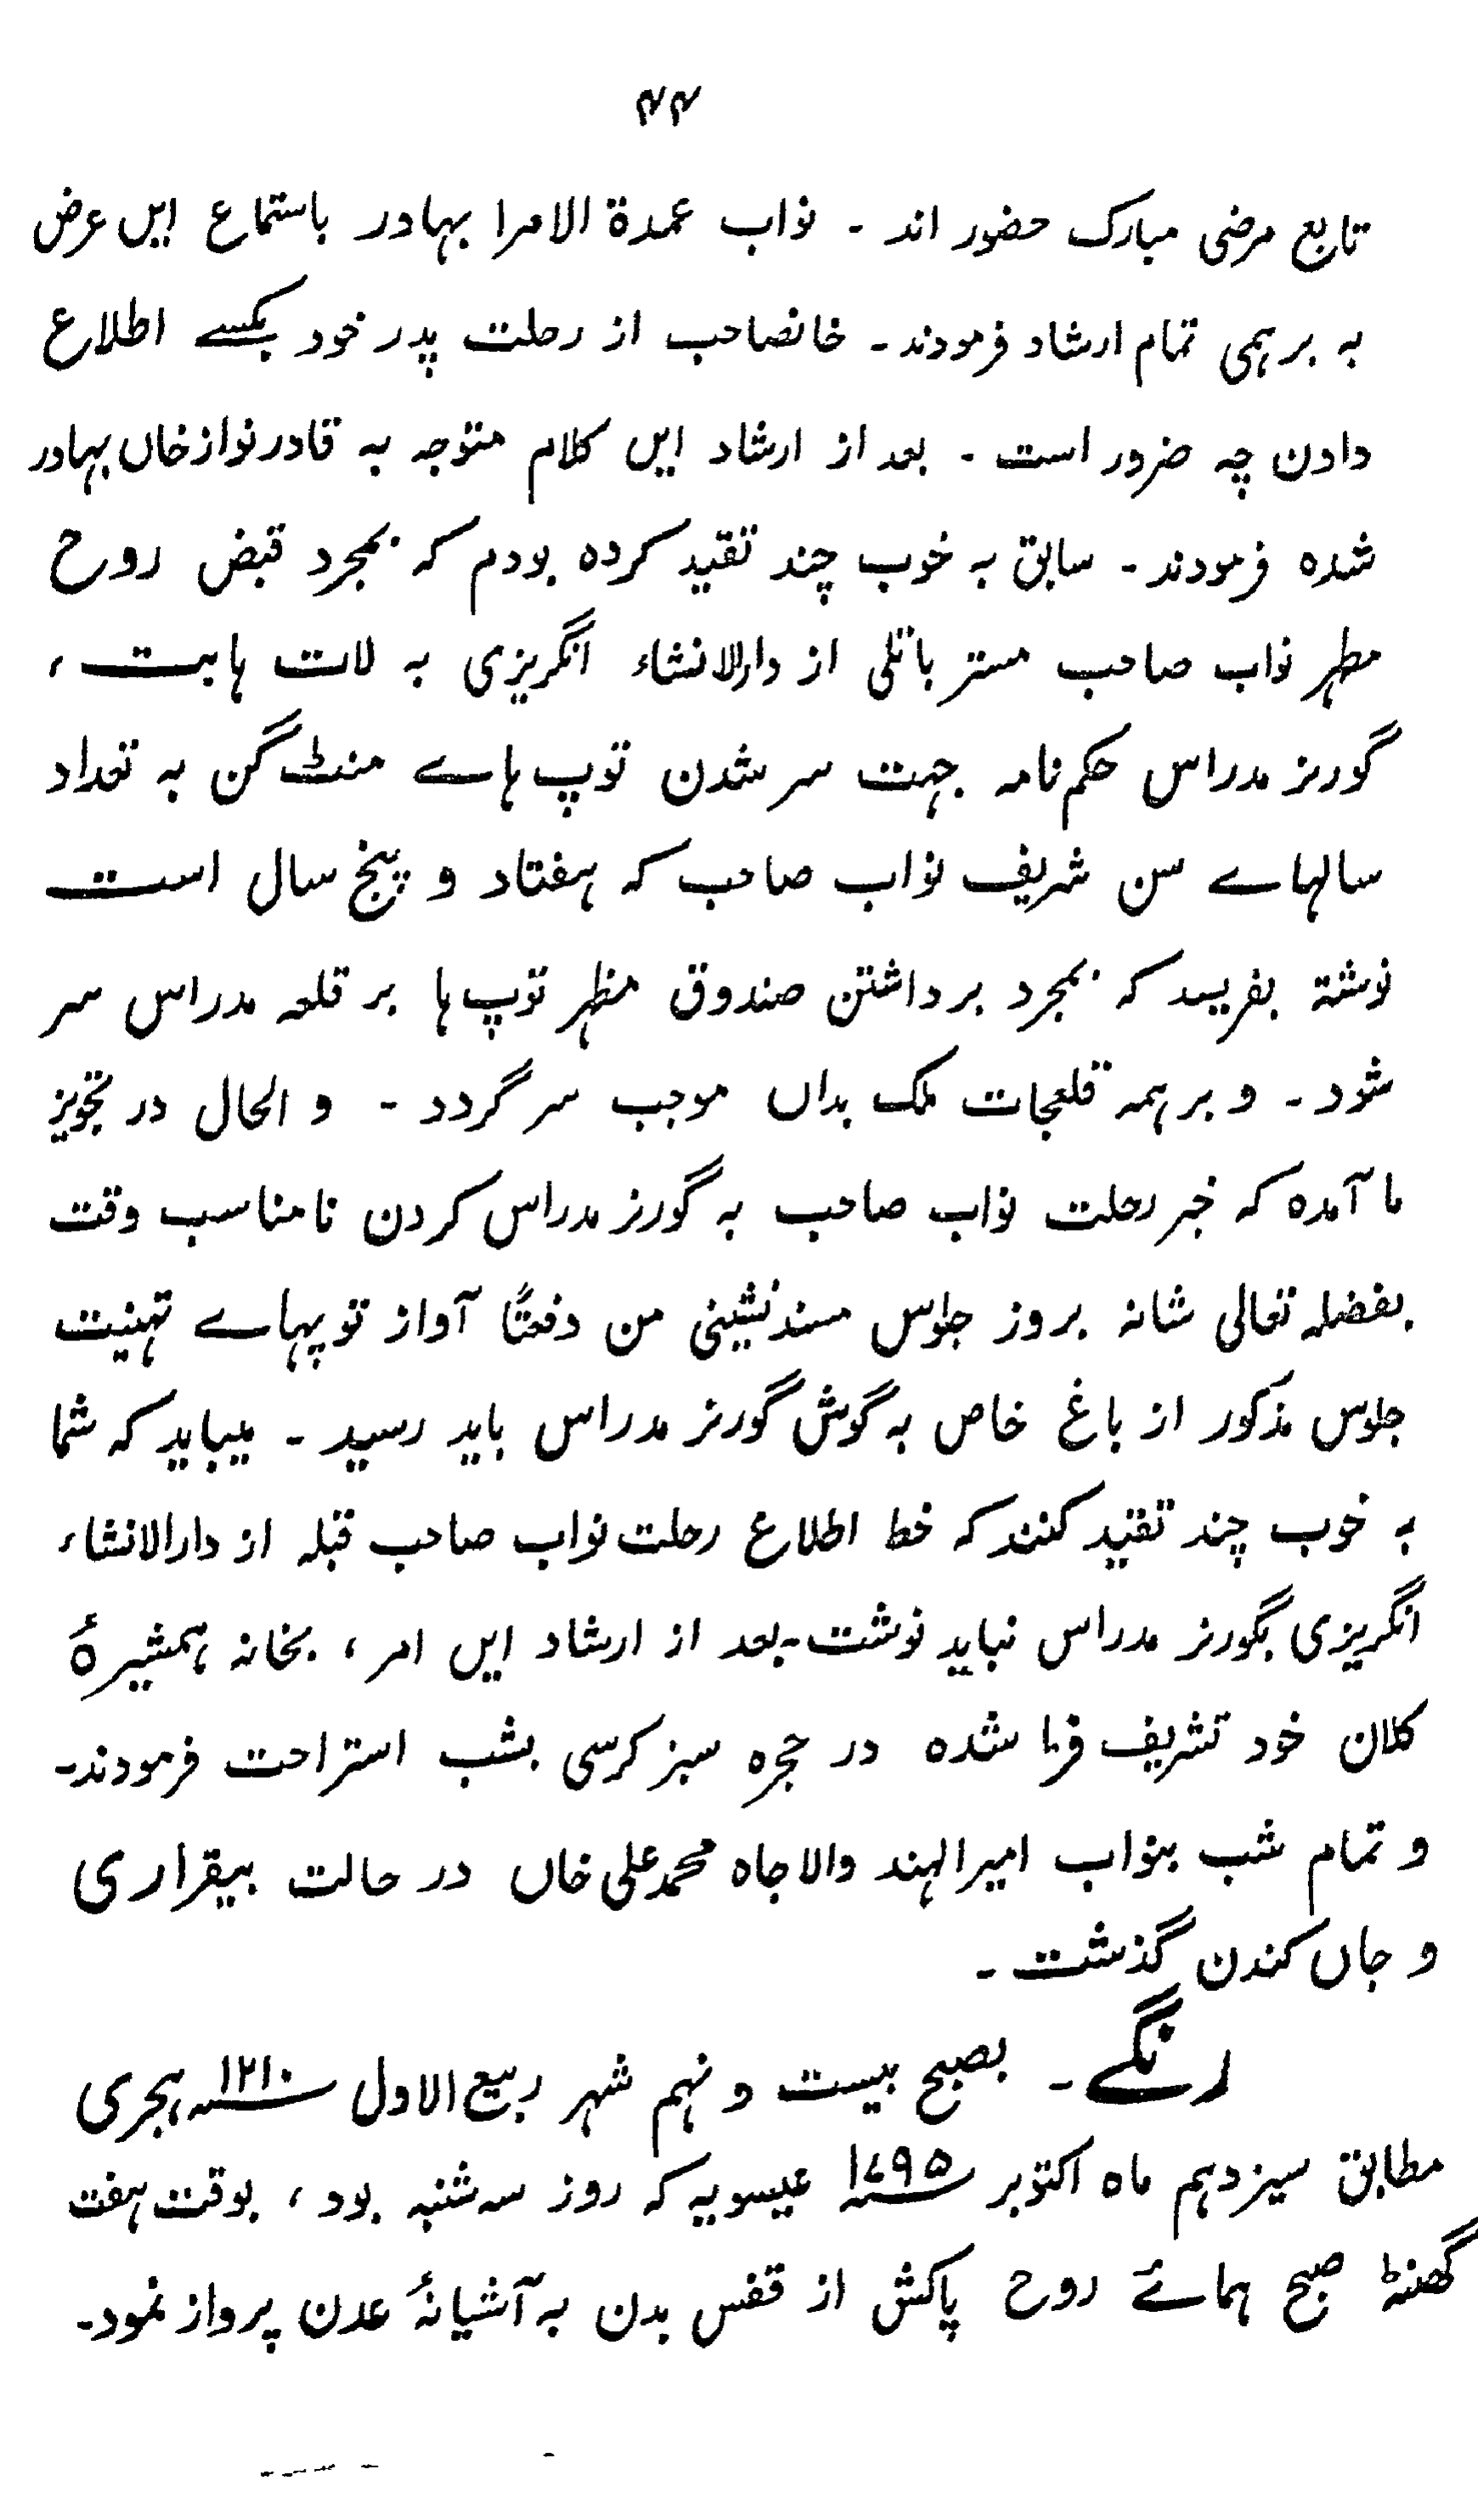 ۴۴
تابع مرضی مبارک حضور اند ۔ نواب عمدة الامرا بہادر باستماع ایں عرض
به برہمی تمام ارشاد فرمودند۔ خانصاحب از رحلت پدر خود بکسے اطلاع
دادن چه ضرور است ۔ بعد از ارشاد ایں کلام متوجه به قادر نواز خاں بہادر
شده فرمودند ۔ سابق به خوب چند تقید کرده بودم که بمجرد قبض روح
مطہر نواب صاحب مستر باتلی از دارالانشاء انگریزی به لات ہابت ،
گورنر مدراس حکم نامه جہت سر شدن توپ ہاے منٹ گن به تعداد
سالہاے سن شریف نواب صاحب که ہفتاد و پنج سال است
نوشتة بفریسد که بمجرد برداشتن صندوق مطہر توپ ہا بر قلعه مدراس سر
شود ۔ و بر ہمه قلعجات ملک بداں موجب سر گردد ۔ و الحال در تجویز
ما آمده که خبر رحلت نواب صاحب به گورنر مدراس کردن نامناسب وقت
بفضله تعالی شانه بروز جلوس مسند نشینی من دفعتًا آواز توپہاے تہنیت
جلوس مذکور از باغ خاص به گوش گورنر مدراس باید رسید ۔ میباید که شما
به خوب چند تقید کنند که خط اطلاع رحلت نواب صاحب قبله از دارالانشاء
انگریزی بگورنر مدراس نباید نوشت ۔ بعد از ارشاد ایں امر ، بخانه ہمشیرۂ
کلان خود تشریف فرما شده در حجره سبز کرسی بشب استراحت فرمودند۔
و تمام شب بنواب امیر الہند والا جاه محمد علی خاں در حالت بیقراری
و جاں کندن گذشت ۔
رنگے ۔ بصبح بیست و نہم شہر ربیع الاول ۱۲۱۰؁ ہجری
مطابق سیزدہم ماه اکتوبر ۱۷۹۵؁ عیسویه که روز سه شنبه بود ، بوقت ہفت
گھنٹه صبح ہمائے روح پاکش از قفس بدن به آشیانۂ عدن پرواز نمود۔